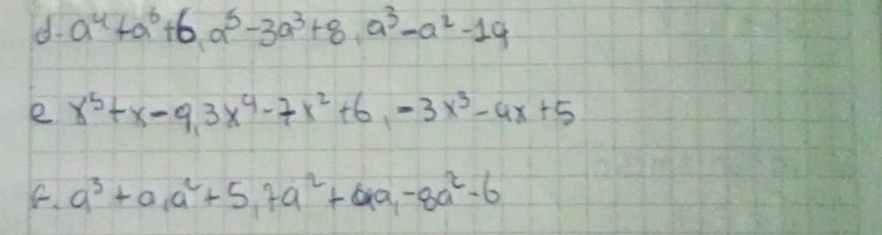 d. a⁴+a⁶+6, a⁵-3a³+8, a³-a²-14
e x⁵+x-9, 3x⁴-7x²+6, -3x³-4x+5
f. a³+a, a²+5, 7a²+4a, -8a²-6